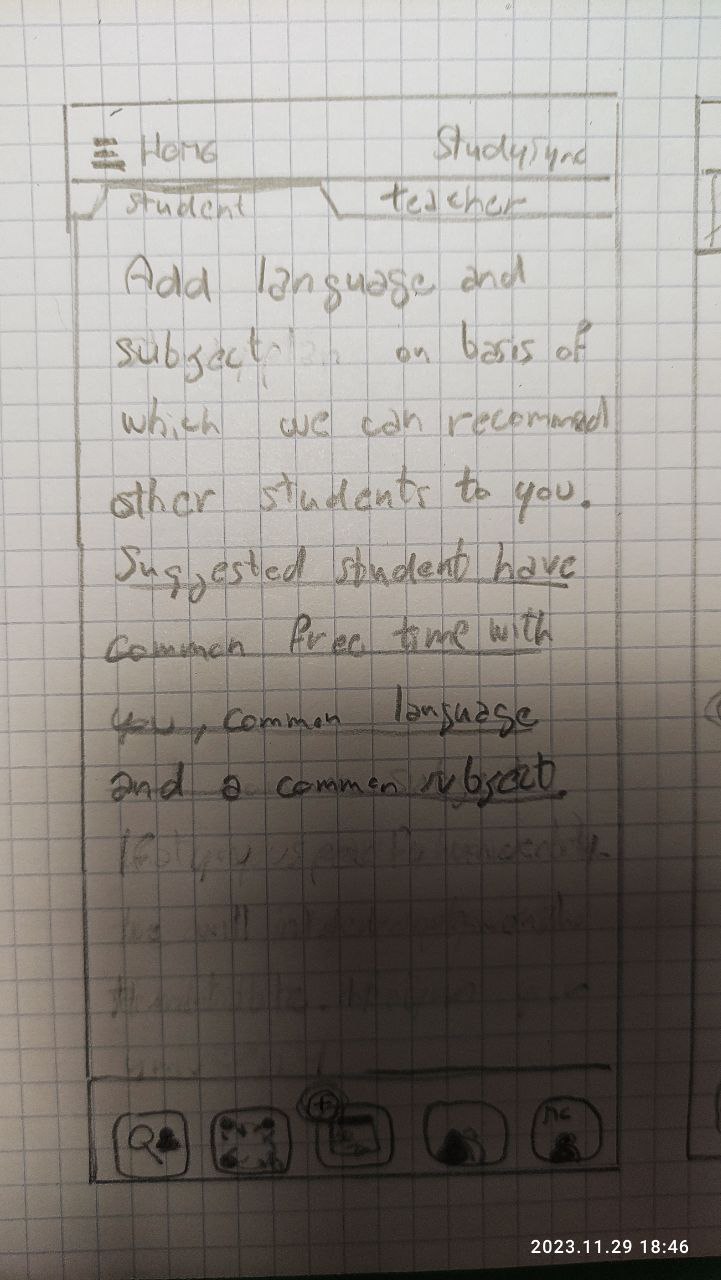 Home StudySync
student teacher
Add language and
subject on basis of
which we can recommed
other students to you.
Suggested student have
common free time with
you, common language
and a common subject.
we will
me
2023.11.29 18:46